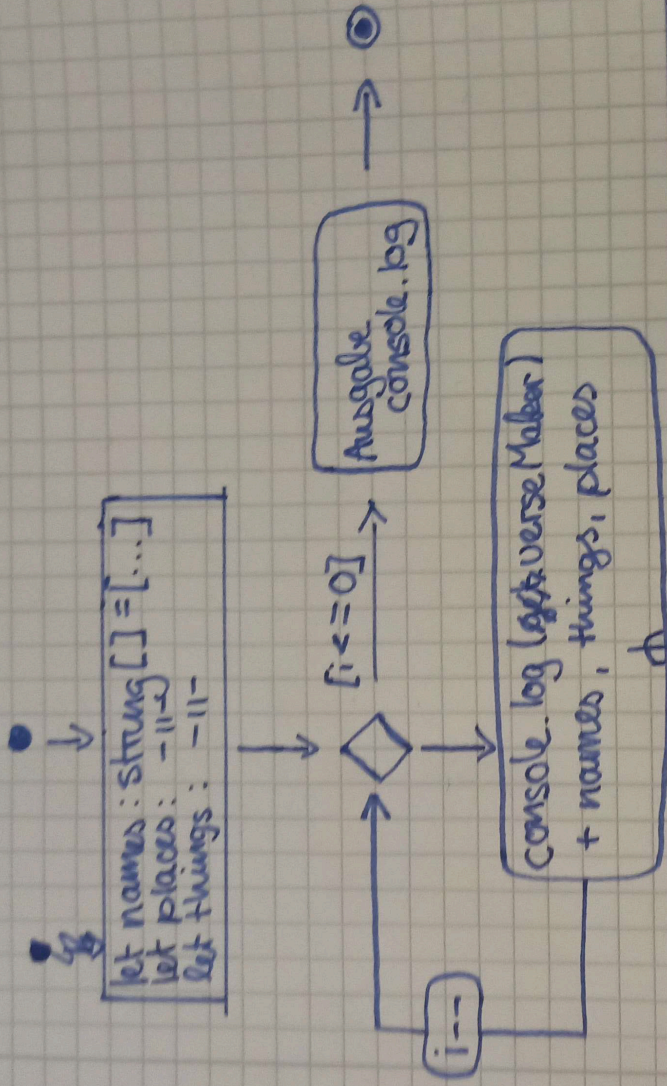 let names: string[] = [...]
let places: -11-
let things: -11-
[i<=0]
Ausgabe
console.log
i--
console.log (verseMaker)
+ names, things, places